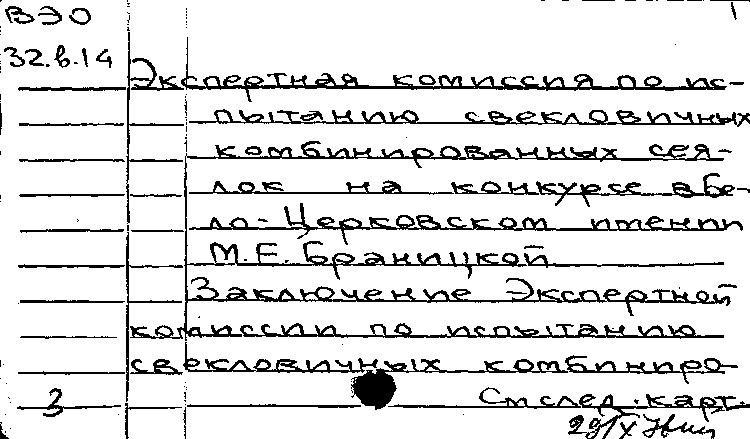 ВЭО
32.в.14
Экспертная комиссия по ис-
пытанию свекловичных
комбинированных сея-
лок на конкурсе в Бе-
ло-Церковском имении
М.Е. Браницкой
Заключение Экспертной
комиссии по испытанию
свекловичных комбиниро-
3
См след. карт.
29/X